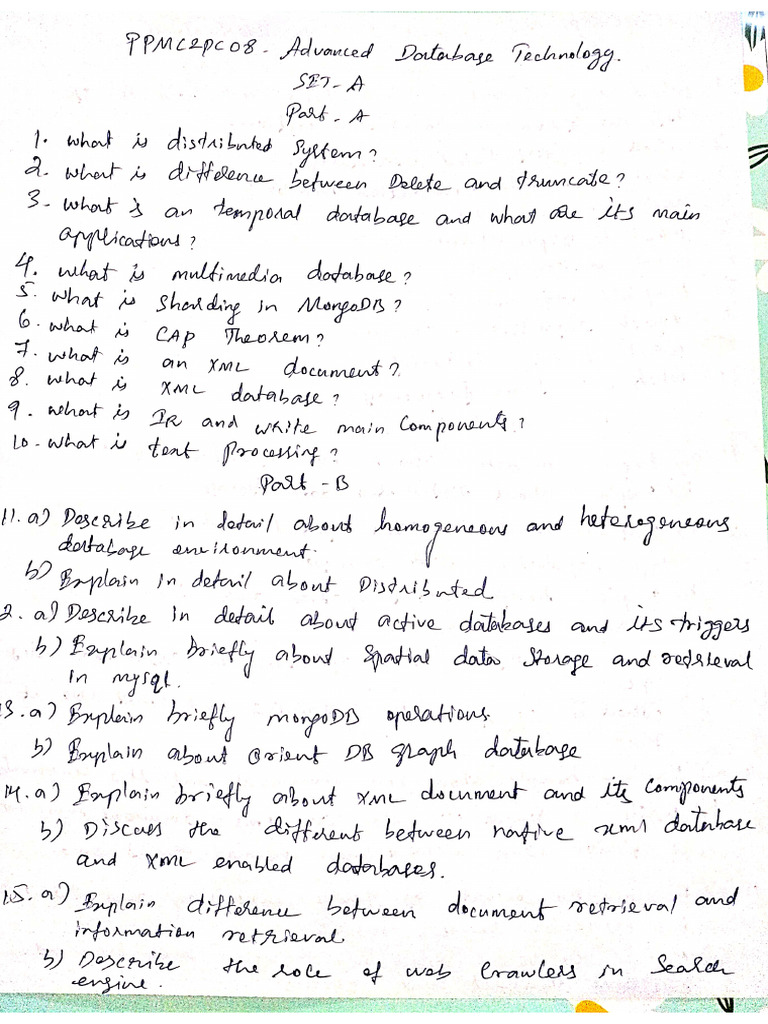 PPMC2PC08 - Advanced Database Technology.
SET - A
Part - A
1. what is distributed system?
2. what is difference between Delete and truncate?
3. what is an temporal database and what are its main
applications?
4. what is multimedia database?
5. what is Sharding in MongoDB?
6. what is CAP Theorem?
7. what is an XML document?
8. what is XML database?
9. what is IR and write main Components?
10. what is text Processing?
Part - B
11. a) Describe in detail about homogeneous and heterogeneous
database environment.
b) Explain in detail about Distributed
2. a) Describe in detail about active databases and its triggers
b) Explain briefly about Spatial data Storage and retrieval
in mysql.
3. a) Explain briefly mongoDB operations.
b) Explain about Orient DB graph database
14. a) Explain briefly about XML document and its Components
b) Discues the different between native xml database
and XML enabled databases.
15. a) Explain difference between document retrieval and
information retrieval.
b) Describe the role of web Crawlers in Search
engine.